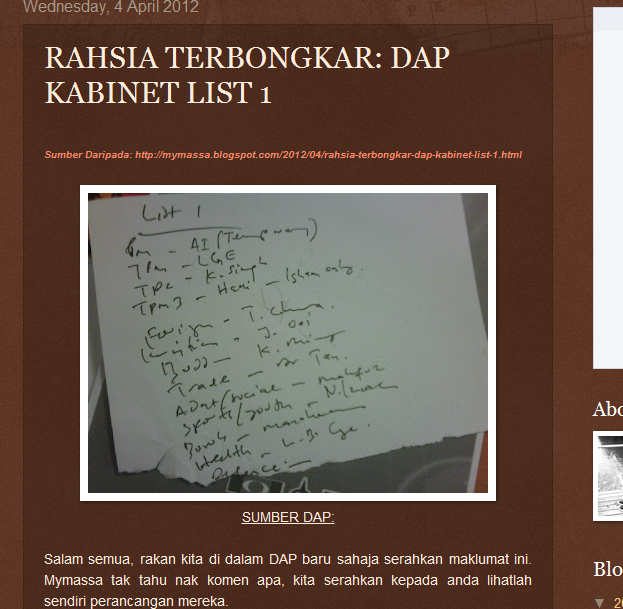 Wednesday, 4 April 2012
RAHSIA TERBONGKAR: DAP
KABINET LIST 1
Sumber Daripada: http://mymassa.blogspot.com/2012/04/rahsia-terbongkar-dap-kabinet-list-1.html
List 1
Pm - AI (Temporary)
TPm - LGE
TP2 - K. Singh
TPm3 - Hadi - Islam only.
Foreign - T. Chua
- J. Ooi
Trade - Dr Tan.
Adat/social -
Sports/youth - N.
Health - L.B.
Defence -
SUMBER DAP:
Salam semua, rakan kita di dalam DAP baru sahaja serahkan maklumat ini.
Mymassa tak tahu nak komen apa, kita serahkan kepada anda lihatlah
sendiri perancangan mereka.
Abo
Blo